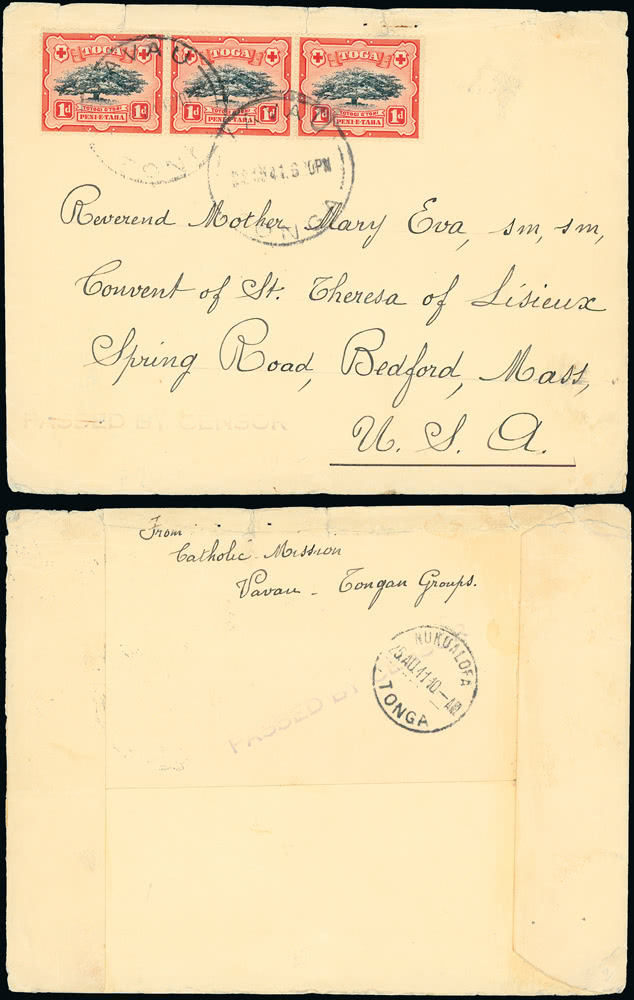 TOGA TOGA TOGA
1d 1d 1d 1d 1d 1d
PENI-E-TAHA PENI-E-TAHA PENI-E-TAHA
TONGA
Reverend Mother Mary Eva, sm, sm,
Convent of St. Theresa of Lisieux
Spring Road, Bedford, Mass,
PASSED BY CENSOR
U. S. A.
From
Catholic Mission
Vavau - Tongan Groups.
NUKUALOFA
25.AU.41.10-AM
TONGA
PASSED BY